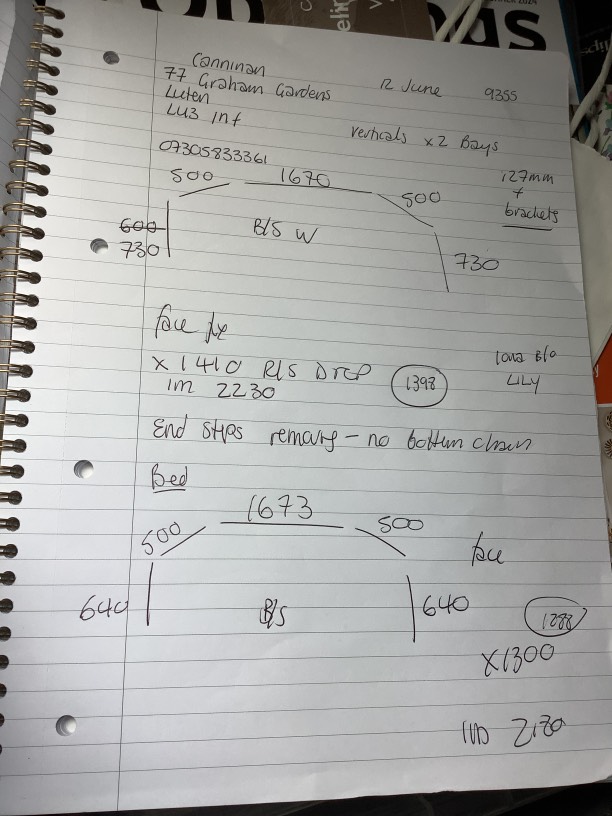 Canninan
77 Graham Gardens
12 June
9355
Luten
LU3 1nf
Verticals x2 Bays
07305833361
127mm
+
brackets
500
1670
500
600
730
B/S W
730
face fix
x 1410 R/S Drop
1398
Iona B/o
LILY
1m 2230
End stips remairg - no bottom chain
Bed
1673
500
500
face
640
B/S
640
1288
x1300
2130